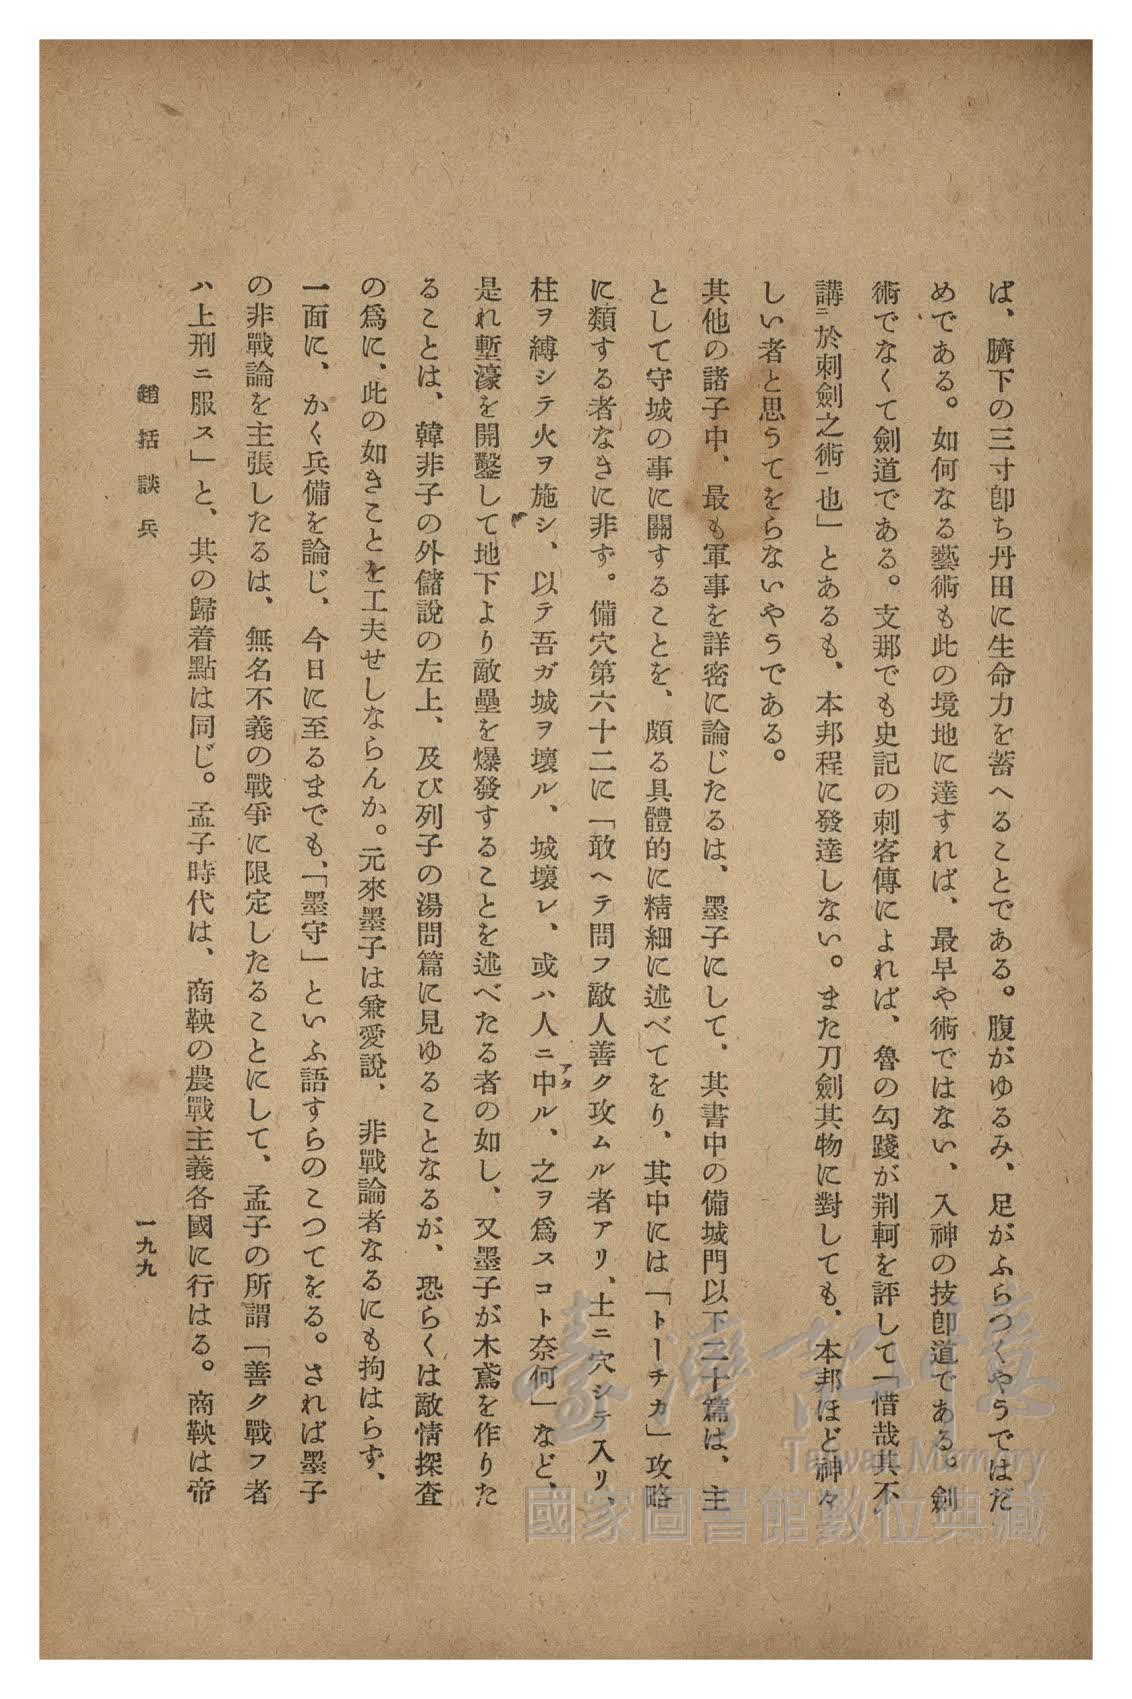 ば、臍下の三寸卽ち丹田に生命力を蓄へることである。腹がゆるみ、足がふらつくやうではだ
めである。如何なる藝術も此の境地に達すれば、最早や術ではない、入神の技卽道である。劍
術でなくて劍道である。支那でも史記の刺客傳によれば、魯の勾踐が荆軻を評して「惜哉其不
講ニ於刺劍之術一也」とあるも、本邦程に發達しない。また刀劍其物に對しても、本邦ほど神々
しい者と思うてをらないやうである。
其他の諸子中、最も軍事を詳密に論じたるは、墨子にして、其書中の備城門以下二十篇は、主
として守城の事に關することを、頗る具體的に精細に述べてをり、其中には「トーチカ」攻略
に類する者なきに非ず。備穴第六十二に「敢ヘテ問フ敵人善ク攻ムル者アリ、土ニ穴シテ入リ、
柱ヲ縛シテ火ヲ施シ、以テ吾ガ城ヲ壞ル、城壞レ、或ハ人ニ中ル、之ヲ爲スコト奈何」など、
アタ
是れ塹濠を開鑿して地下より敵壘を爆發することを述べたる者の如し、又墨子が木鳶を作りた
ることは、韓非子の外儲說の左上、及び列子の湯問篇に見ゆることなるが、恐らくは敵情探査
の爲に、此の如きことを工夫せしならんか。元來墨子は兼愛說、非戰論者なるにも拘はらず、
一面に、かく兵備を論じ、今日に至るまでも、「墨守」といふ語すらのこつてをる。されば墨子
の非戰論を主張したるは、無名不義の戰爭に限定したることにして、孟子の所謂「善ク戰フ者
ハ上刑ニ服ス」と、其の歸着點は同じ。孟子時代は、商鞅の農戰主義各國に行はる。商鞅は帝
趙括談兵
一九九
臺灣記憶
Taiwan Memory
國家圖書館數位典藏